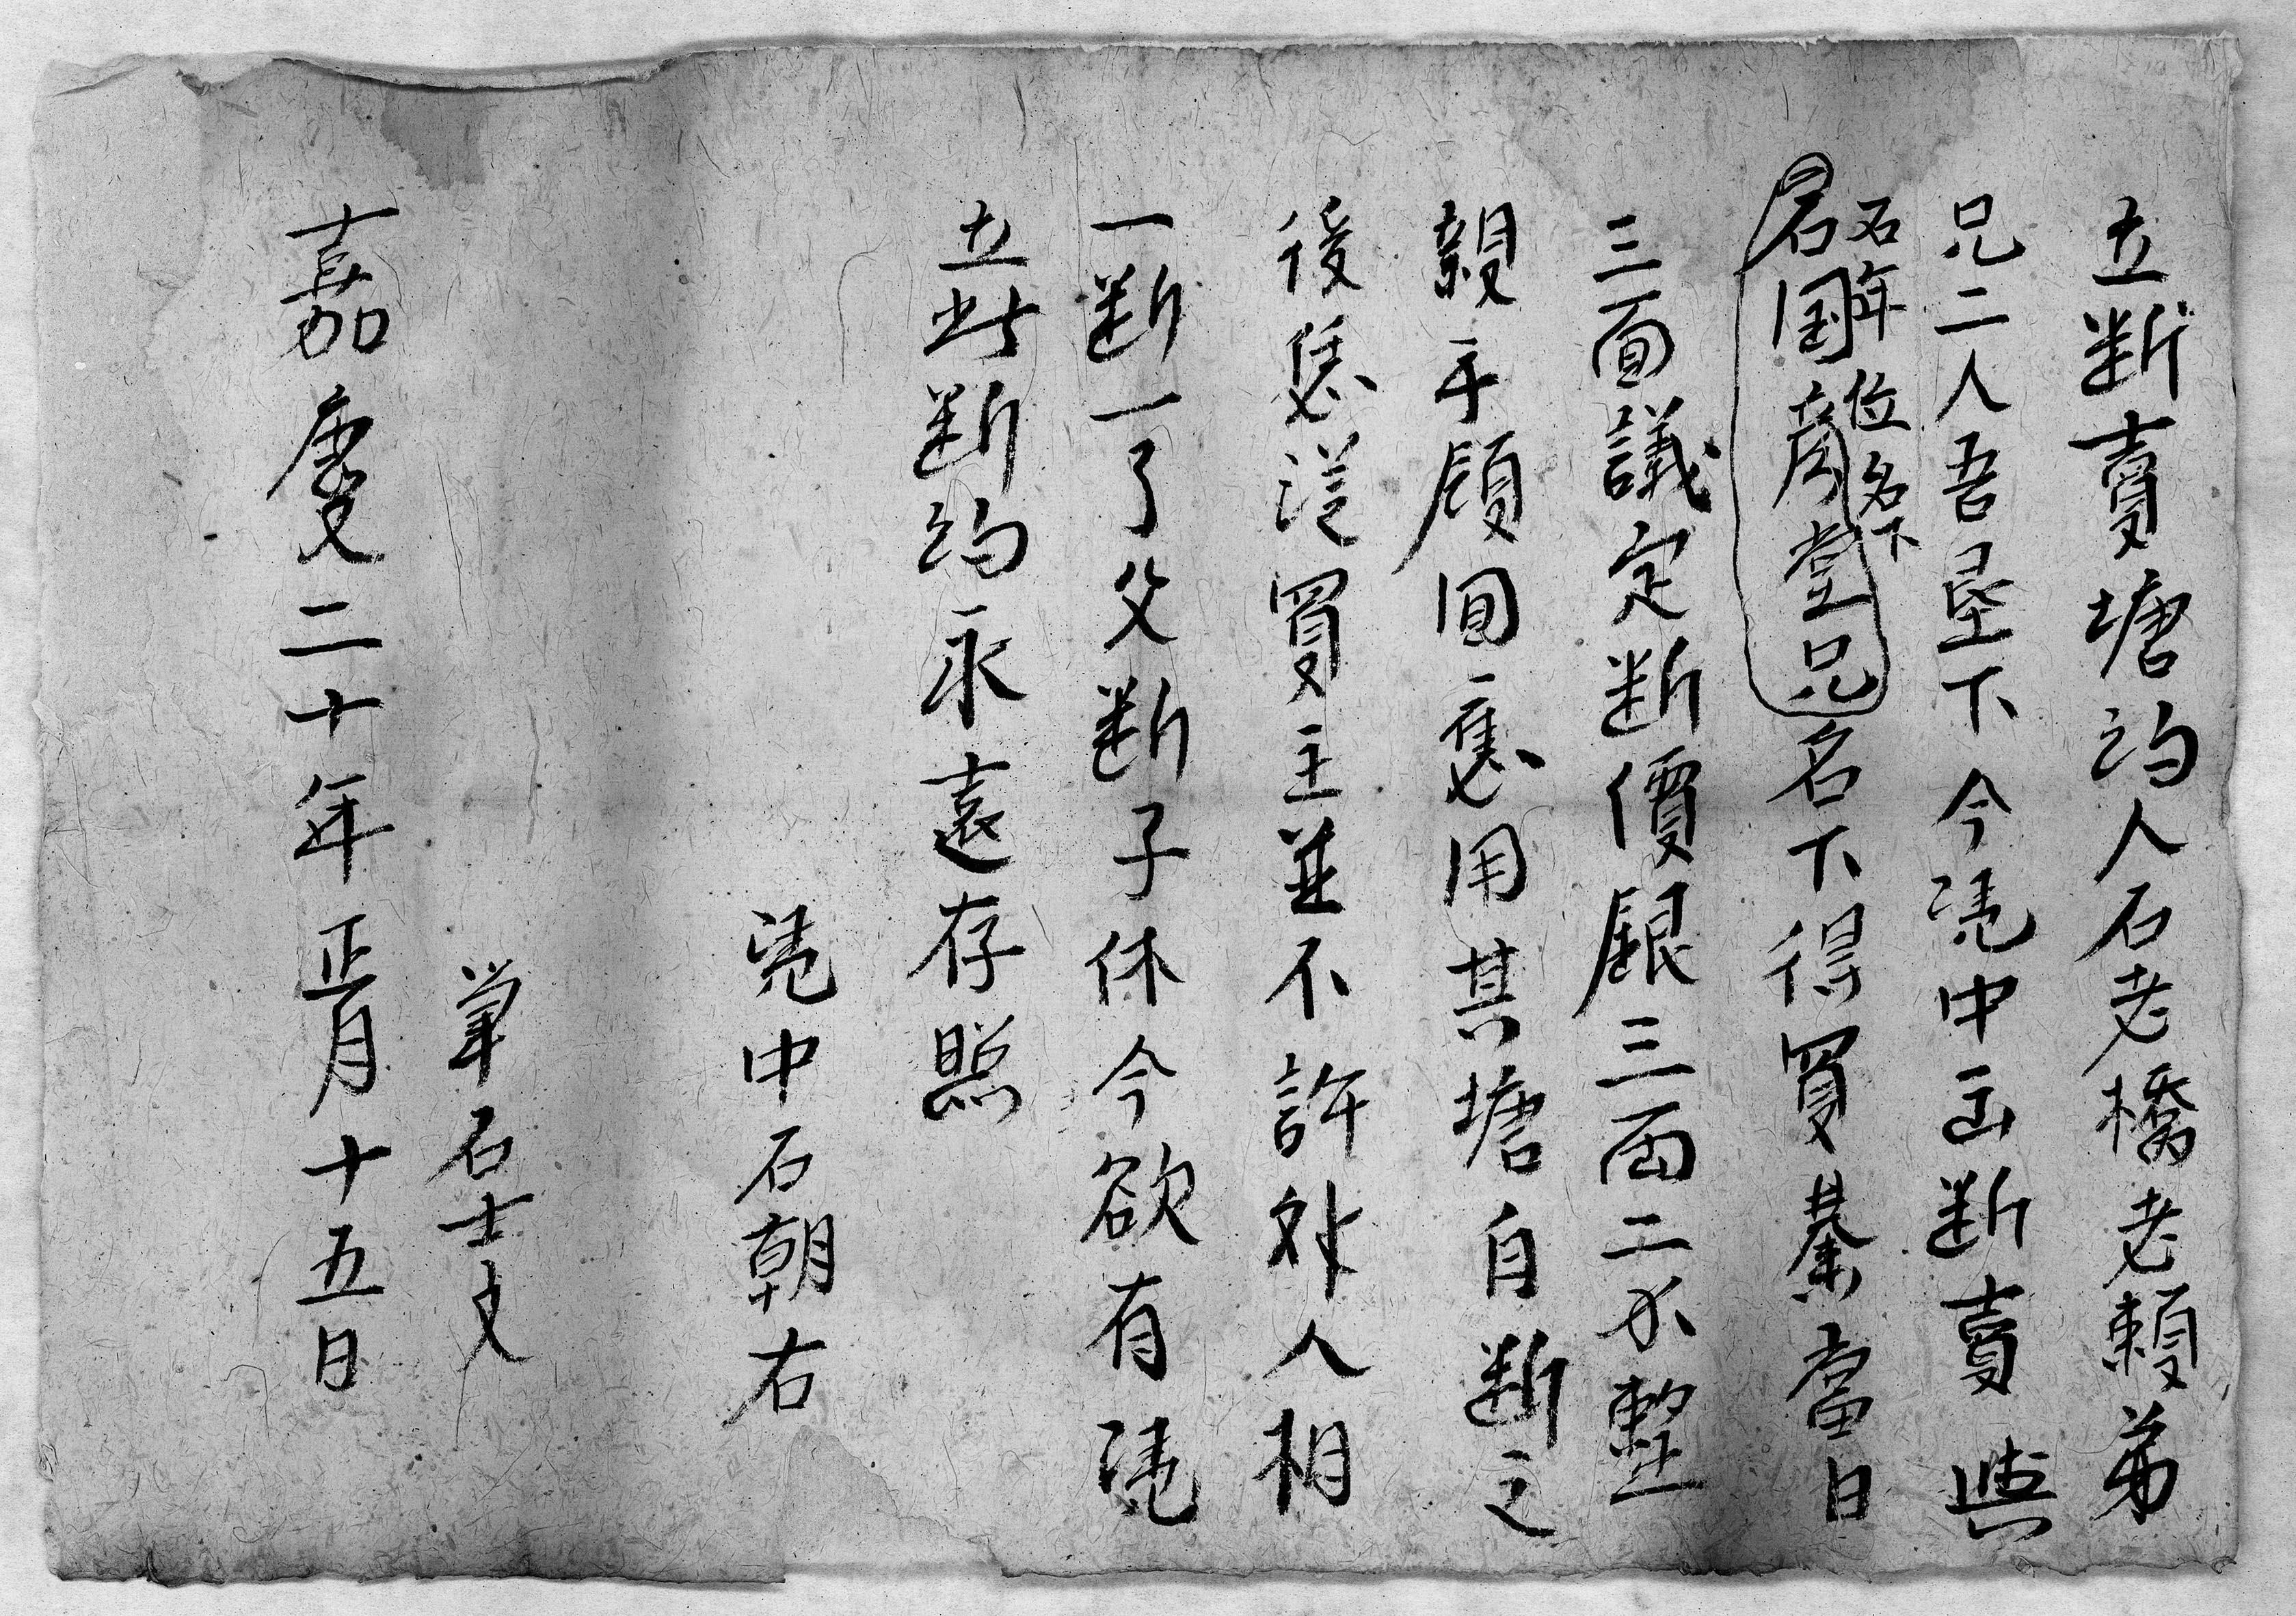 立断賣塘約人石老橋老賴弟
兄二人吾垦下今凴中出断賣與
石年位名下
石国彦堂兄名下得買蓁當日
三面議定断價銀三両二分整
親手領回應用其塘自断之
後恁從買主並不許外人相
一断一了父断子休今欲有凴
立此断约永遠存照
凴中石朝右
筆石士文
嘉慶二十年正月十五日